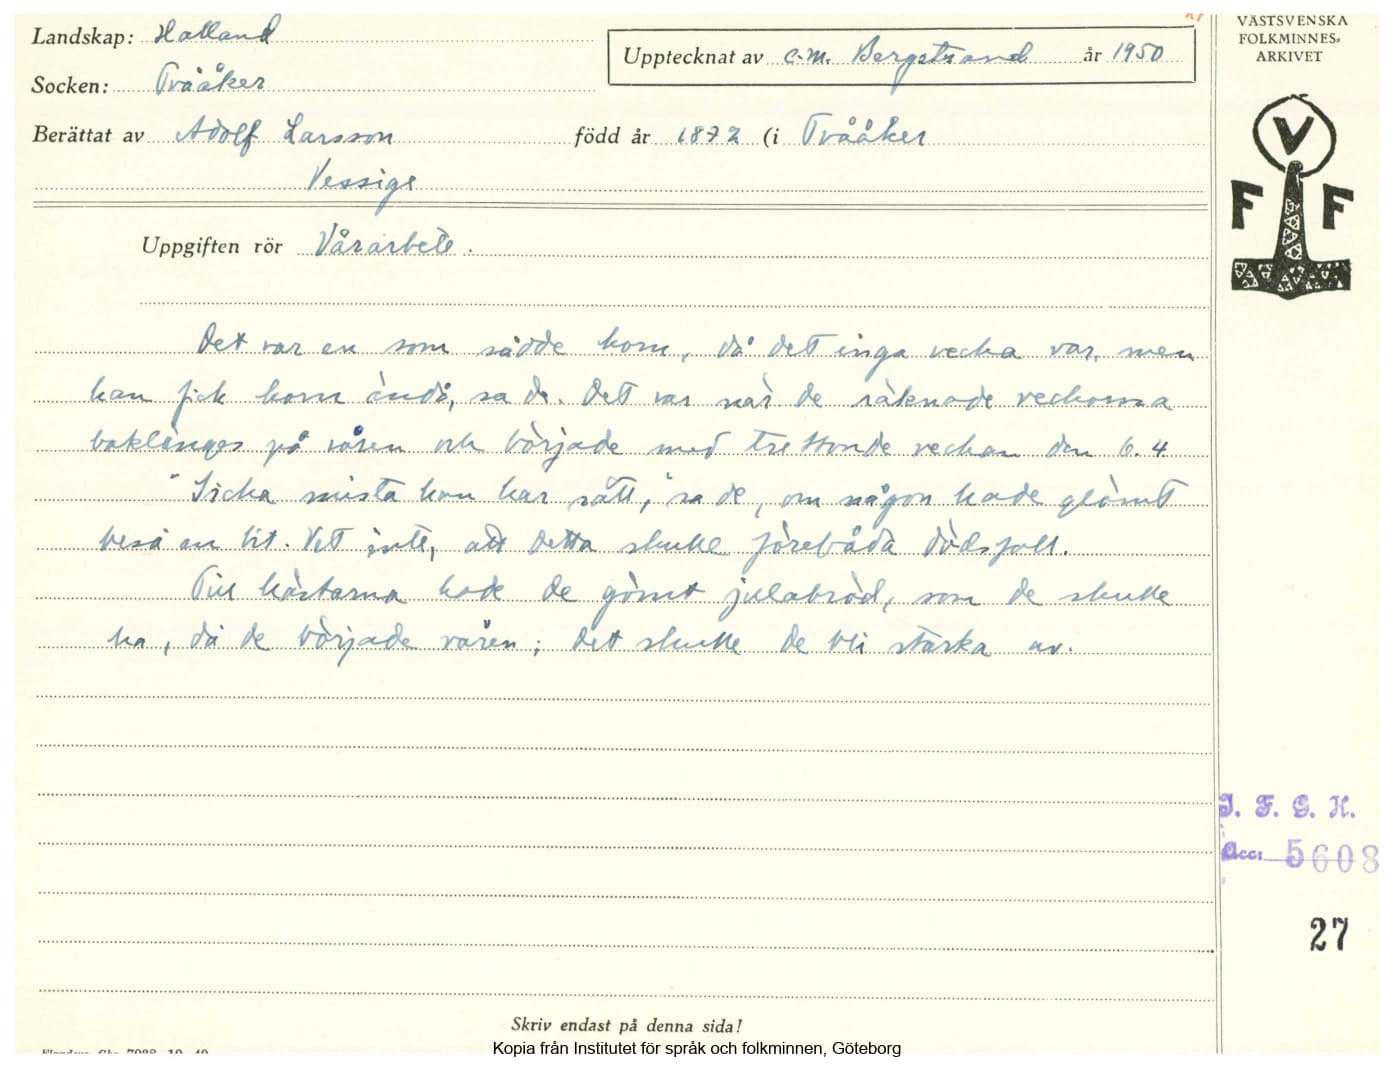 Landskap: Halland
Upptecknat av C.M. Bergstrand år 1950
Socken: Tvååker
Berättat av Adolf Larsson född år 1872 (i Tvååker
Vessige
Uppgiften rör Vårarbete.
Det var en som sådde korn, då det inga vecka var, men
han fick korn ändå, sa de. Det var när de räknade veckorna
baklänges på våren och började med trettonde veckan den 6.4.
"Licka mista hon har sått," sa de, om någon hade glömt
beså en bit. Vet inte, att detta skulle förebåda dödsfall.
Till hästarna hade de gömt julabröd, som de skulle
ha, då de började våren; det skulle de bli starka av.
VÄSTSVENSKA
FOLKMINNES-
ARKIVET
V
F F
I. F. G. H.
Acc: 5608
27
Skriv endast på denna sida!
Kopia från Institutet för språk och folkminnen, Göteborg